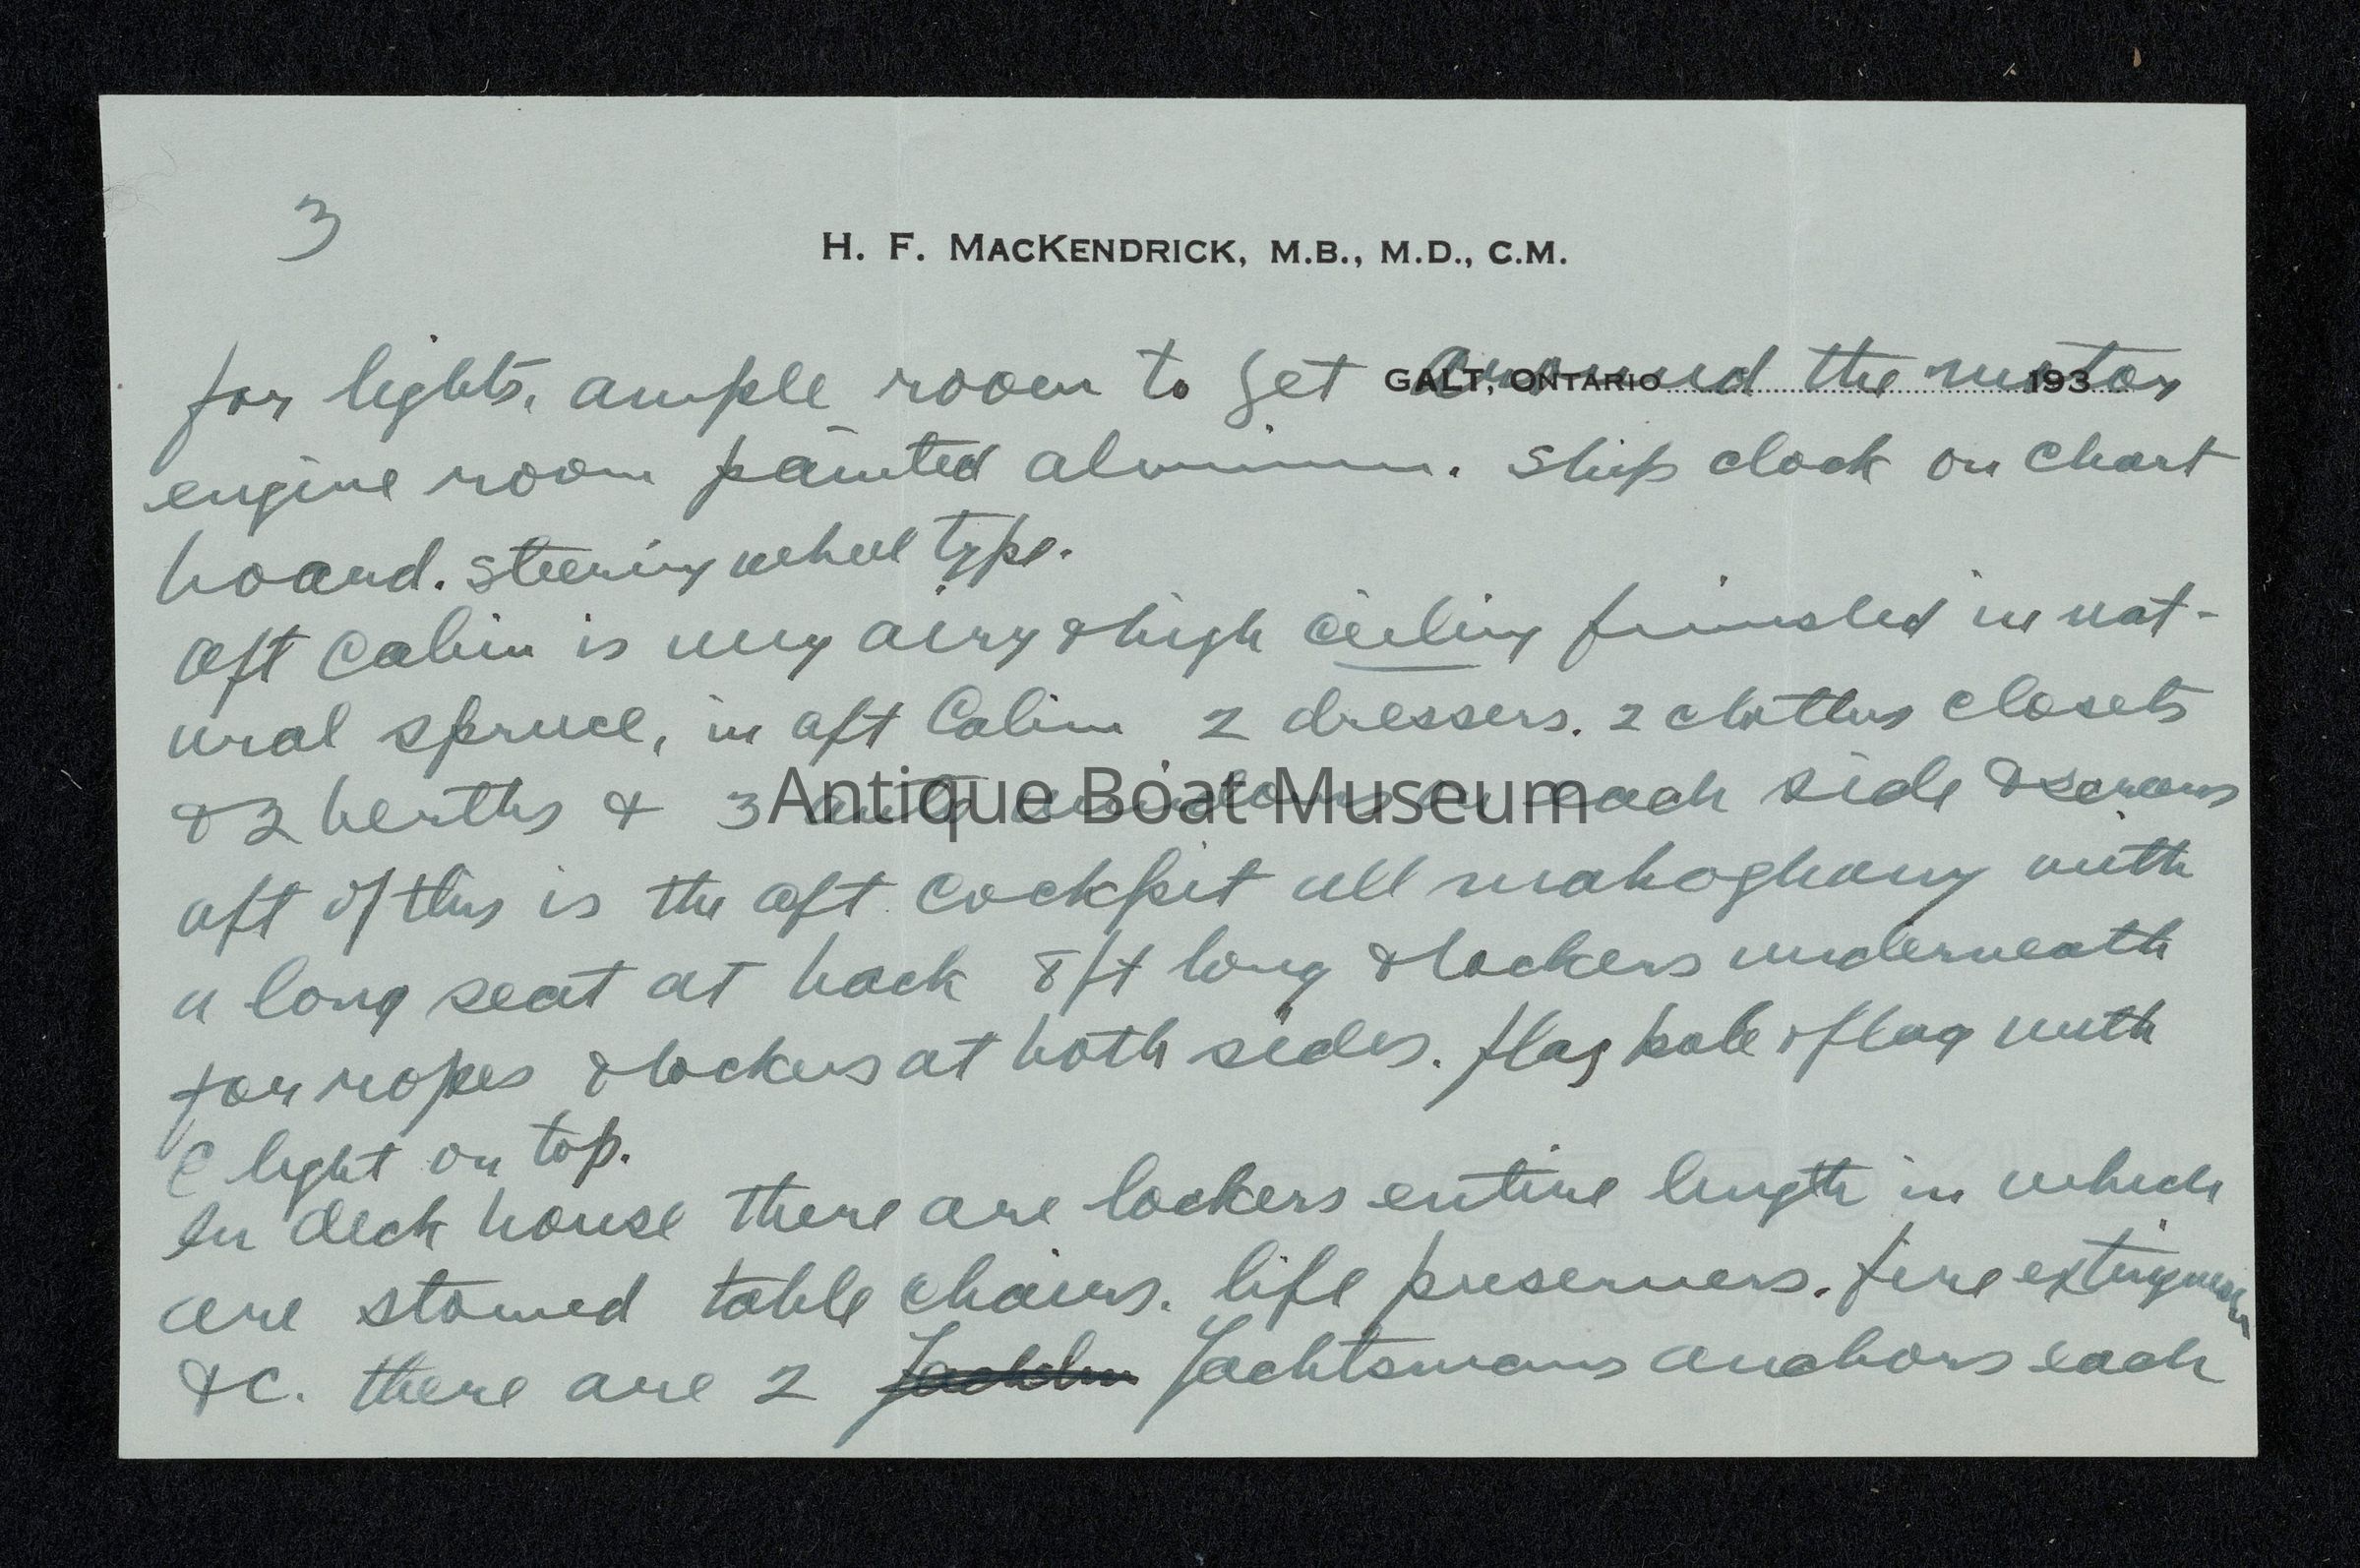 3
H. F. MACKENDRICK, M.B., M.D., C.M.
GALT, ONTARIO 193
for lights, ample room to get around the motor
engine room painted aluminum. ship clock on chart
board. steering wheel type.
aft cabin is very airy & high ceiling finished in nat-
ural spruce, in aft Cabin 2 dressers. 2 clothes closets
& 2 berths & 3 auto windows on each side & screens
Antique Boat Museum
aft of this is the aft cockpit all mahoghany with
a long seat at back 8 ft long & lockers underneath
for ropes & lockers at both sides. flag pole & flag with
light on top.
In deck house there are lockers entire length in which
are stowed table chairs. life preservers. fire
&c. there are 2 Yachtsmans anchors each